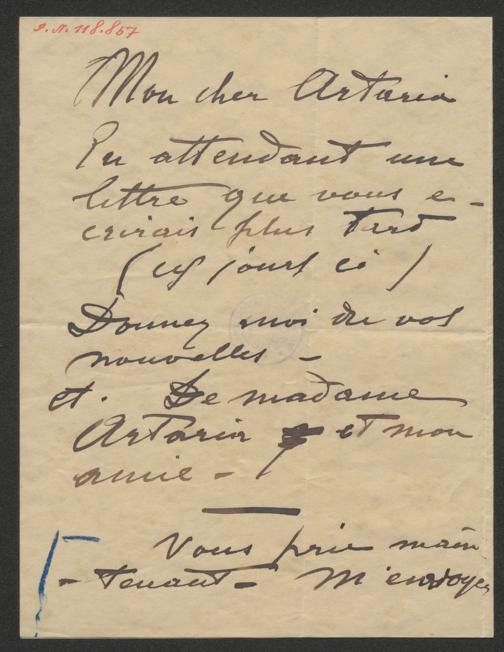 I.N. 118.857
Mon cher Artaria
En attendant une
lettre que vous e-
crirais plus tard
(ces jours ci)
Donnez moi de vos
nouvelles -
et. De madame
Artaria et mon
amie -
Vous prie main
- tenant - m'envoyez